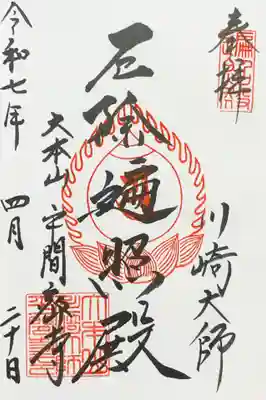 奉拝
川崎大師
厄除遍照殿
大本山平間寺
令和七年 四月 二十日